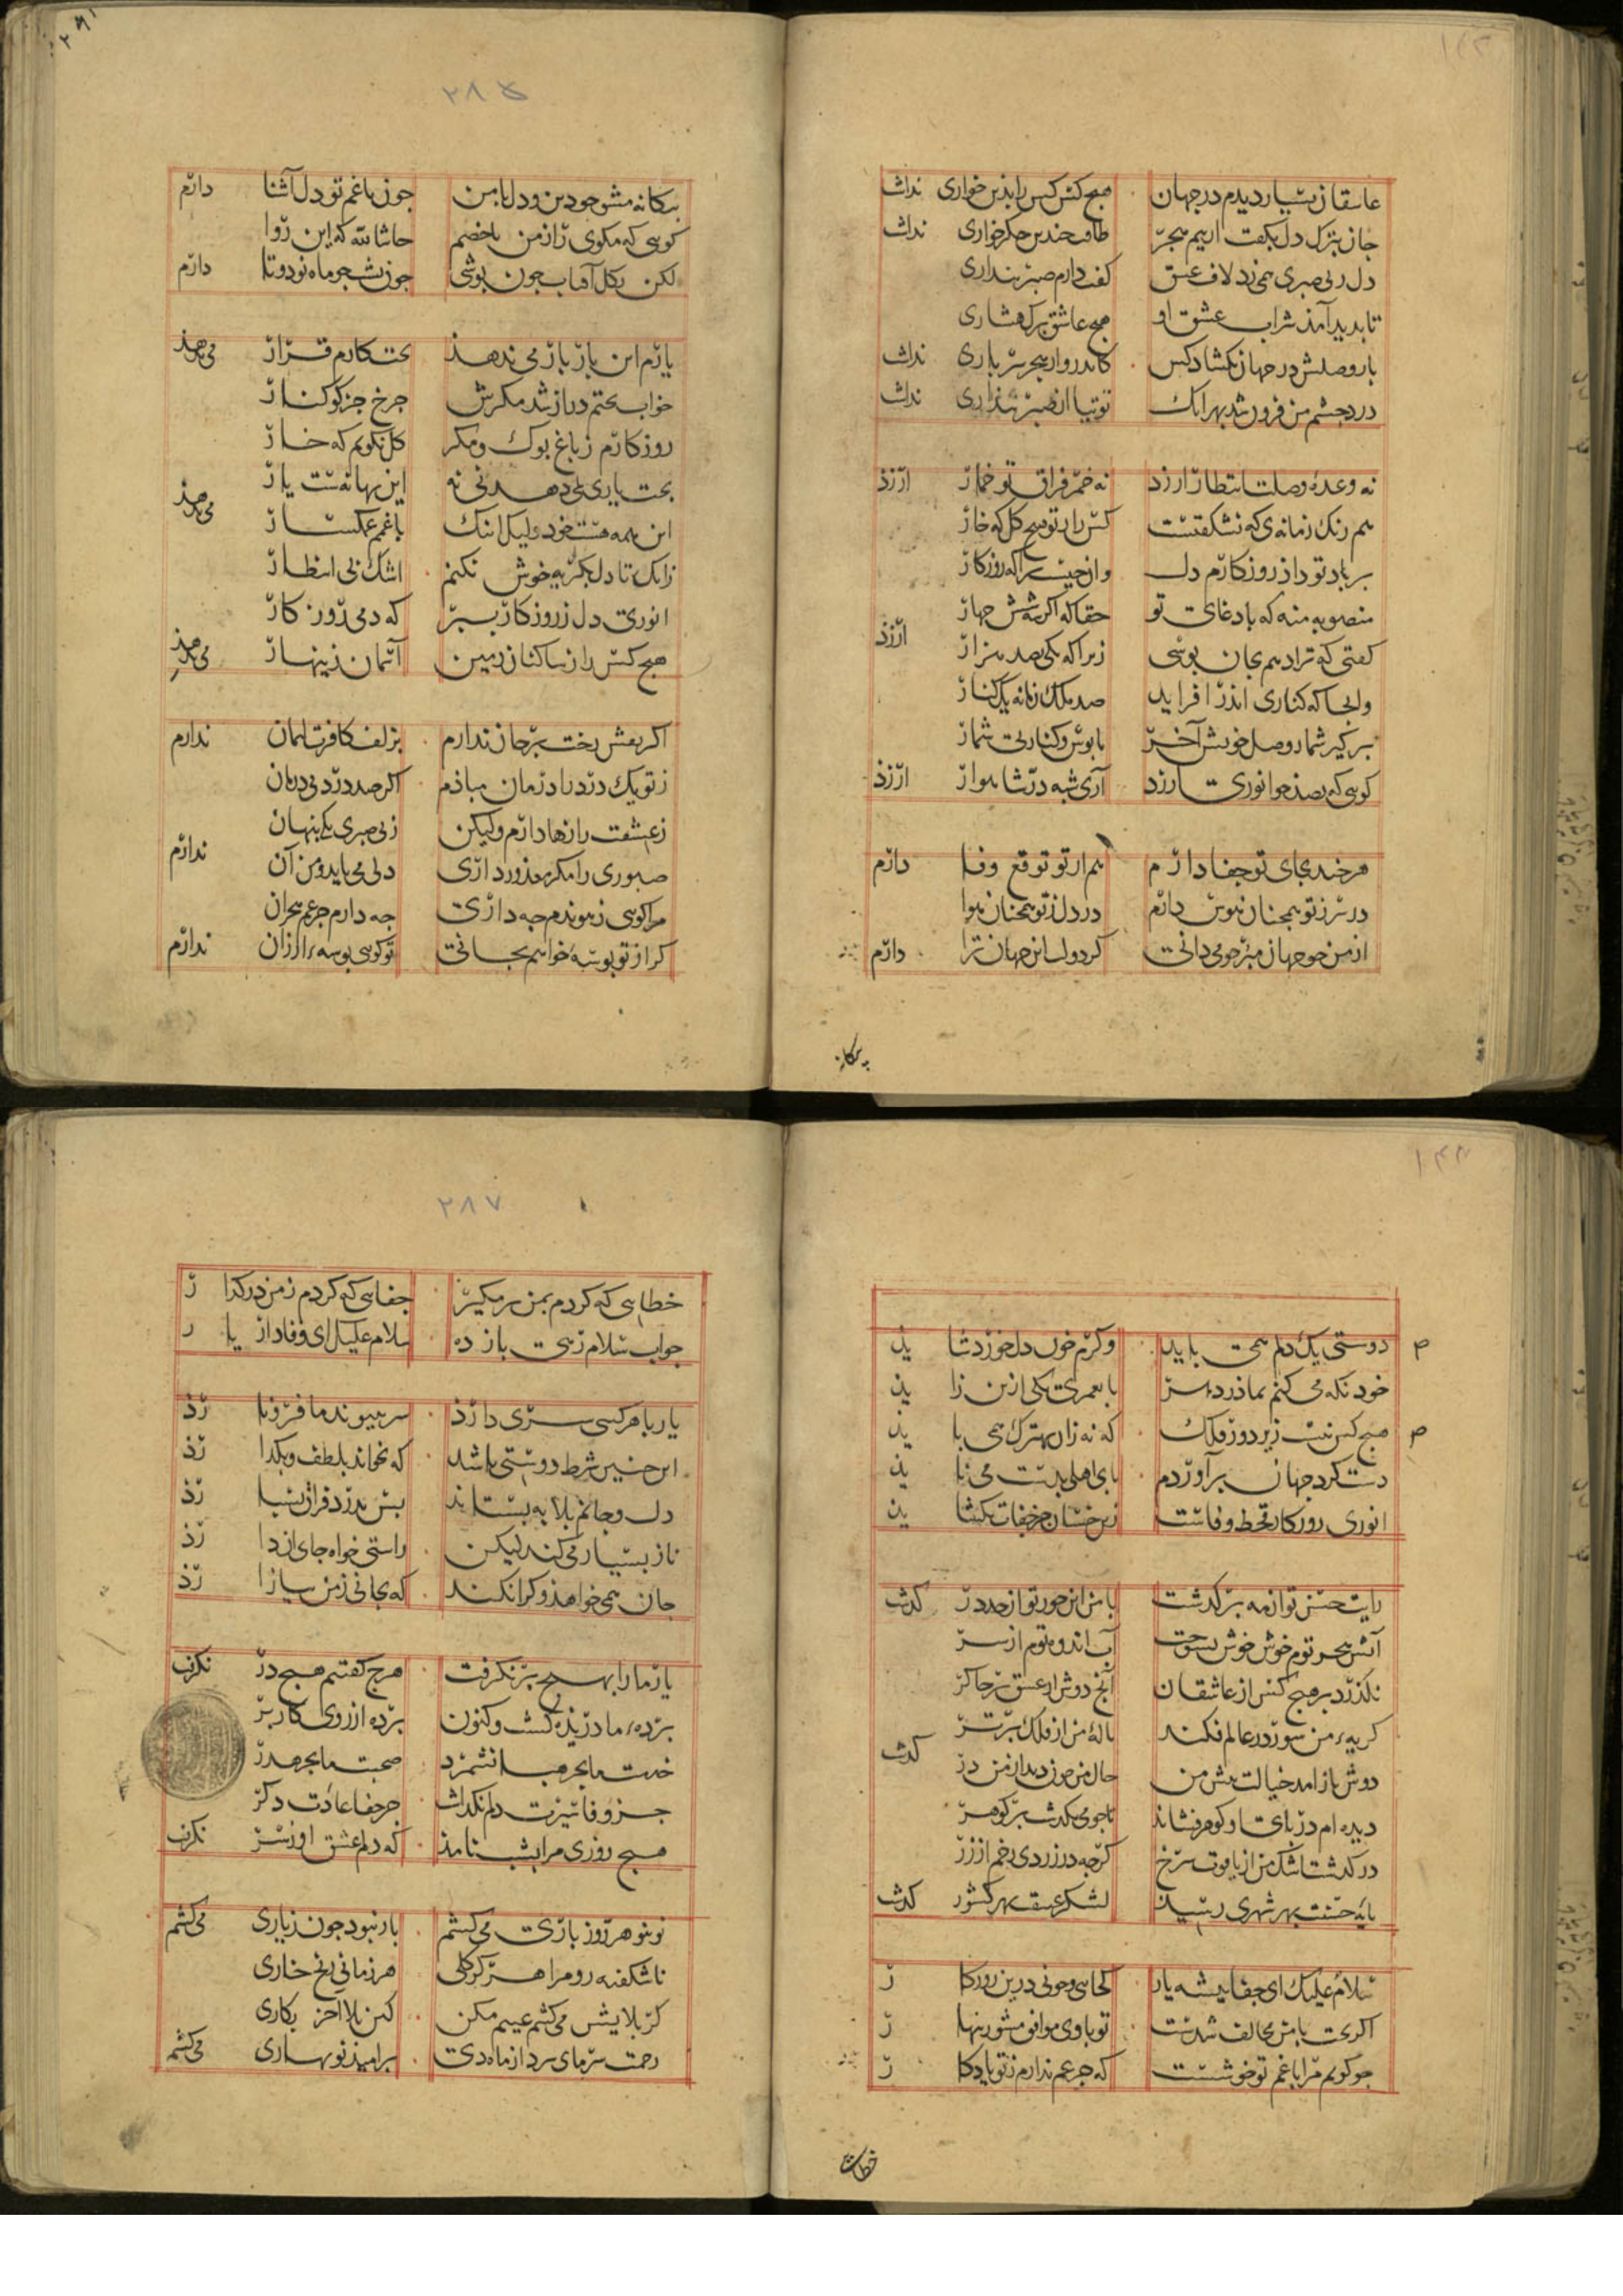 عاشقان بسیار دیدم در جهان هیچ کس کس را بدین خواری نداشت
جان بترک دل بگفت از بیم هجر طاقت چندین جگرخواری نداشت
دل ز بی صبری همی زد لاف عشق گفت دارم صبر پنداری
تا بدید آمد شراب عشق او هیچ عاشق برگ هشیاری
بار وصلش در جهان نکشاد کس کاندرو از هجر سرباری نداشت
درد چشم من فزون شد بهر انک توتیا از صبر پنداری نداشت
نه وعده وصلت انتظار ارزد نه خمر فراق تو خمار ارزذ
هم رنک زمانه ی که نشکفتست کس را ز تو هیچ کل که خار
بر یاد تو داد روزکارم دل وان چیست نه آن که روزکار
منصوبه منه که با دغای تو حقا که اکر شش چهار
کفتی که ترا دهم بجان بوسی زیرا که یکی بصد هزار ارزذ
وانجا که کناری اندر افزاید صد ملک زمانه یک کنار
برکیر شمار وصل خویش آخر با بوس و کنار بی شمار
کویی که بصد جو انوری ارزد آری شبه در شاهوار ارزذ
هر چند بجای تو جفا دارم هم از تو توقع وفا دارم
در سر ز تو همچنان هوس دارم در دل ز تو همچنان هوا
از من چو جهان مبر چو می دانی کز دولت این جهان ترا دارم
بیکانه
۲۸۵
بیکانه مشو چو دین و دل با من چون با غم تو دل آشنا دارم
کویی که مکوی راز من با خصم حاشا لله که این روا
لکن بکل آفتاب چون پوشی چون پشت چو ماه نو دوتا دارم
یارم این بار بار می ندهد بخت کارم قرار می ندهذ
خواب بختم دراز شد مکرش چرخ جز کوکنار
روزکارم ز باغ بوک و مکر کل نکویم که خار
بخت یاری همی دهد نی نه این بهانه ست یار می ندهذ
این همه هست خود ولیک اینک با غمم غمکسار
زانک تا دل بکریه خوش نکنم اشک بی انتظار
انوری دل ز روزکار ببر که دمی روزکار
هیچ کس را ز ساکنان زمین آسمان زینهار می ندهذ
اکر نقش رخت بر جان ندارم بزلف کافرت ایمان ندارم
ز تو یک درد را درمان مبادم اکر صد درد بی درمان
ز عشقت رازها دارم ولیکن ز بی صبری یکی پنهان
صبوری را مکر معذور داری دلی می باید و من آن ندارم
مرا کویی ز پیوندم چه داری چه دارم جز غم هجران
کر از تو بوسه خواهم بجانی تو کویی بوسه ارزان ندارم
۱۴۴
دوستی یک دلم همی باید وکرم خون دل خورد شاید
خود نکه می کنم بمادر دهر با بعمری یکی ازین زاید
هیچ کس نیست زیر دور فلک که نه زان بهترک همی باید
دست کرد جهان برآوردم پای اهلی بدست می ناید
انوری روزکار قحط وفاست زین خسان جز جفات نکشاید
رایت حسن تو از مه برکذشت با من این جور تو از حد درکذشت
آتش هجر توم خوش خوش بسوخت آب اندوه توم از سر
نکذرد بر هیچ کس از عاشقان آنچ دوش از عشق بر چاکر
کریه من شور در عالم فکند ناله من از فلک برتر کذشت
دوش باز آمد خیالت پیش من حال من چون دید از من در
دیده ام در پای او کوهر فشاند تا چو می بکذشت بر کوهر
درکذشت اشک من از یاقوت سرخ کرچه در زردی رخم از زر
پای حسنت بهر شهری رسید لشکر عشقت بهر کشور کذشت
سلام علیک ای جفا پیشه یار کجایی و چونی درین روزکار
اکر بخت با من مخالف شدست تو با وی موافق مشو زینهار
چو کویم مرا با غم تو خوشست که جز غم ندارم ز تو یادکار
خطایی
۲۸۷
خطایی که کردم بمن برمکیر جفایی که کردم ز من درکذار
جواب سلام رهی باز ده سلام علیک ای وفادار یار
یار با هر کسی سری دارذ سر بپیوند ما فرو نارذ
این چنین شرط دوستی باشد که بخواند بلطف و بکذارذ
دل و جانم بلابه بستاند پس بدرد فراق بسپارذ
ناز بسیار می کند لیکن راستی خواه جای آن دارذ
جان همی خواهد و کرا نکند که بجانی ز من بیازارذ
یار ما را بهیچ برنکرفت هرچ کفتیم هیچ درنکرفت
پرده ما دریده کشت و کنون پرده از روی کار بر
خدمت ما بجز هبا نشمرد صحبت ما بجز هدر
جز وفا سیرت دلم نکذاشت جز جفا عادت دکر
هیچ روزی مرا بشب نامد که دلم عشق او ز سر نکرفت
نو بنو هر روز باری می کشم بار نبود چون ز یاری می کشم
ناشکفته رو مرا هرکز کلی هر زمانی رنج خاری
کر بلایش می کشم عیبم مکن کین بلا آخر بکاری
زحمت سرمای سرد از ماه دی بر امیذ نوبهاری می کشم